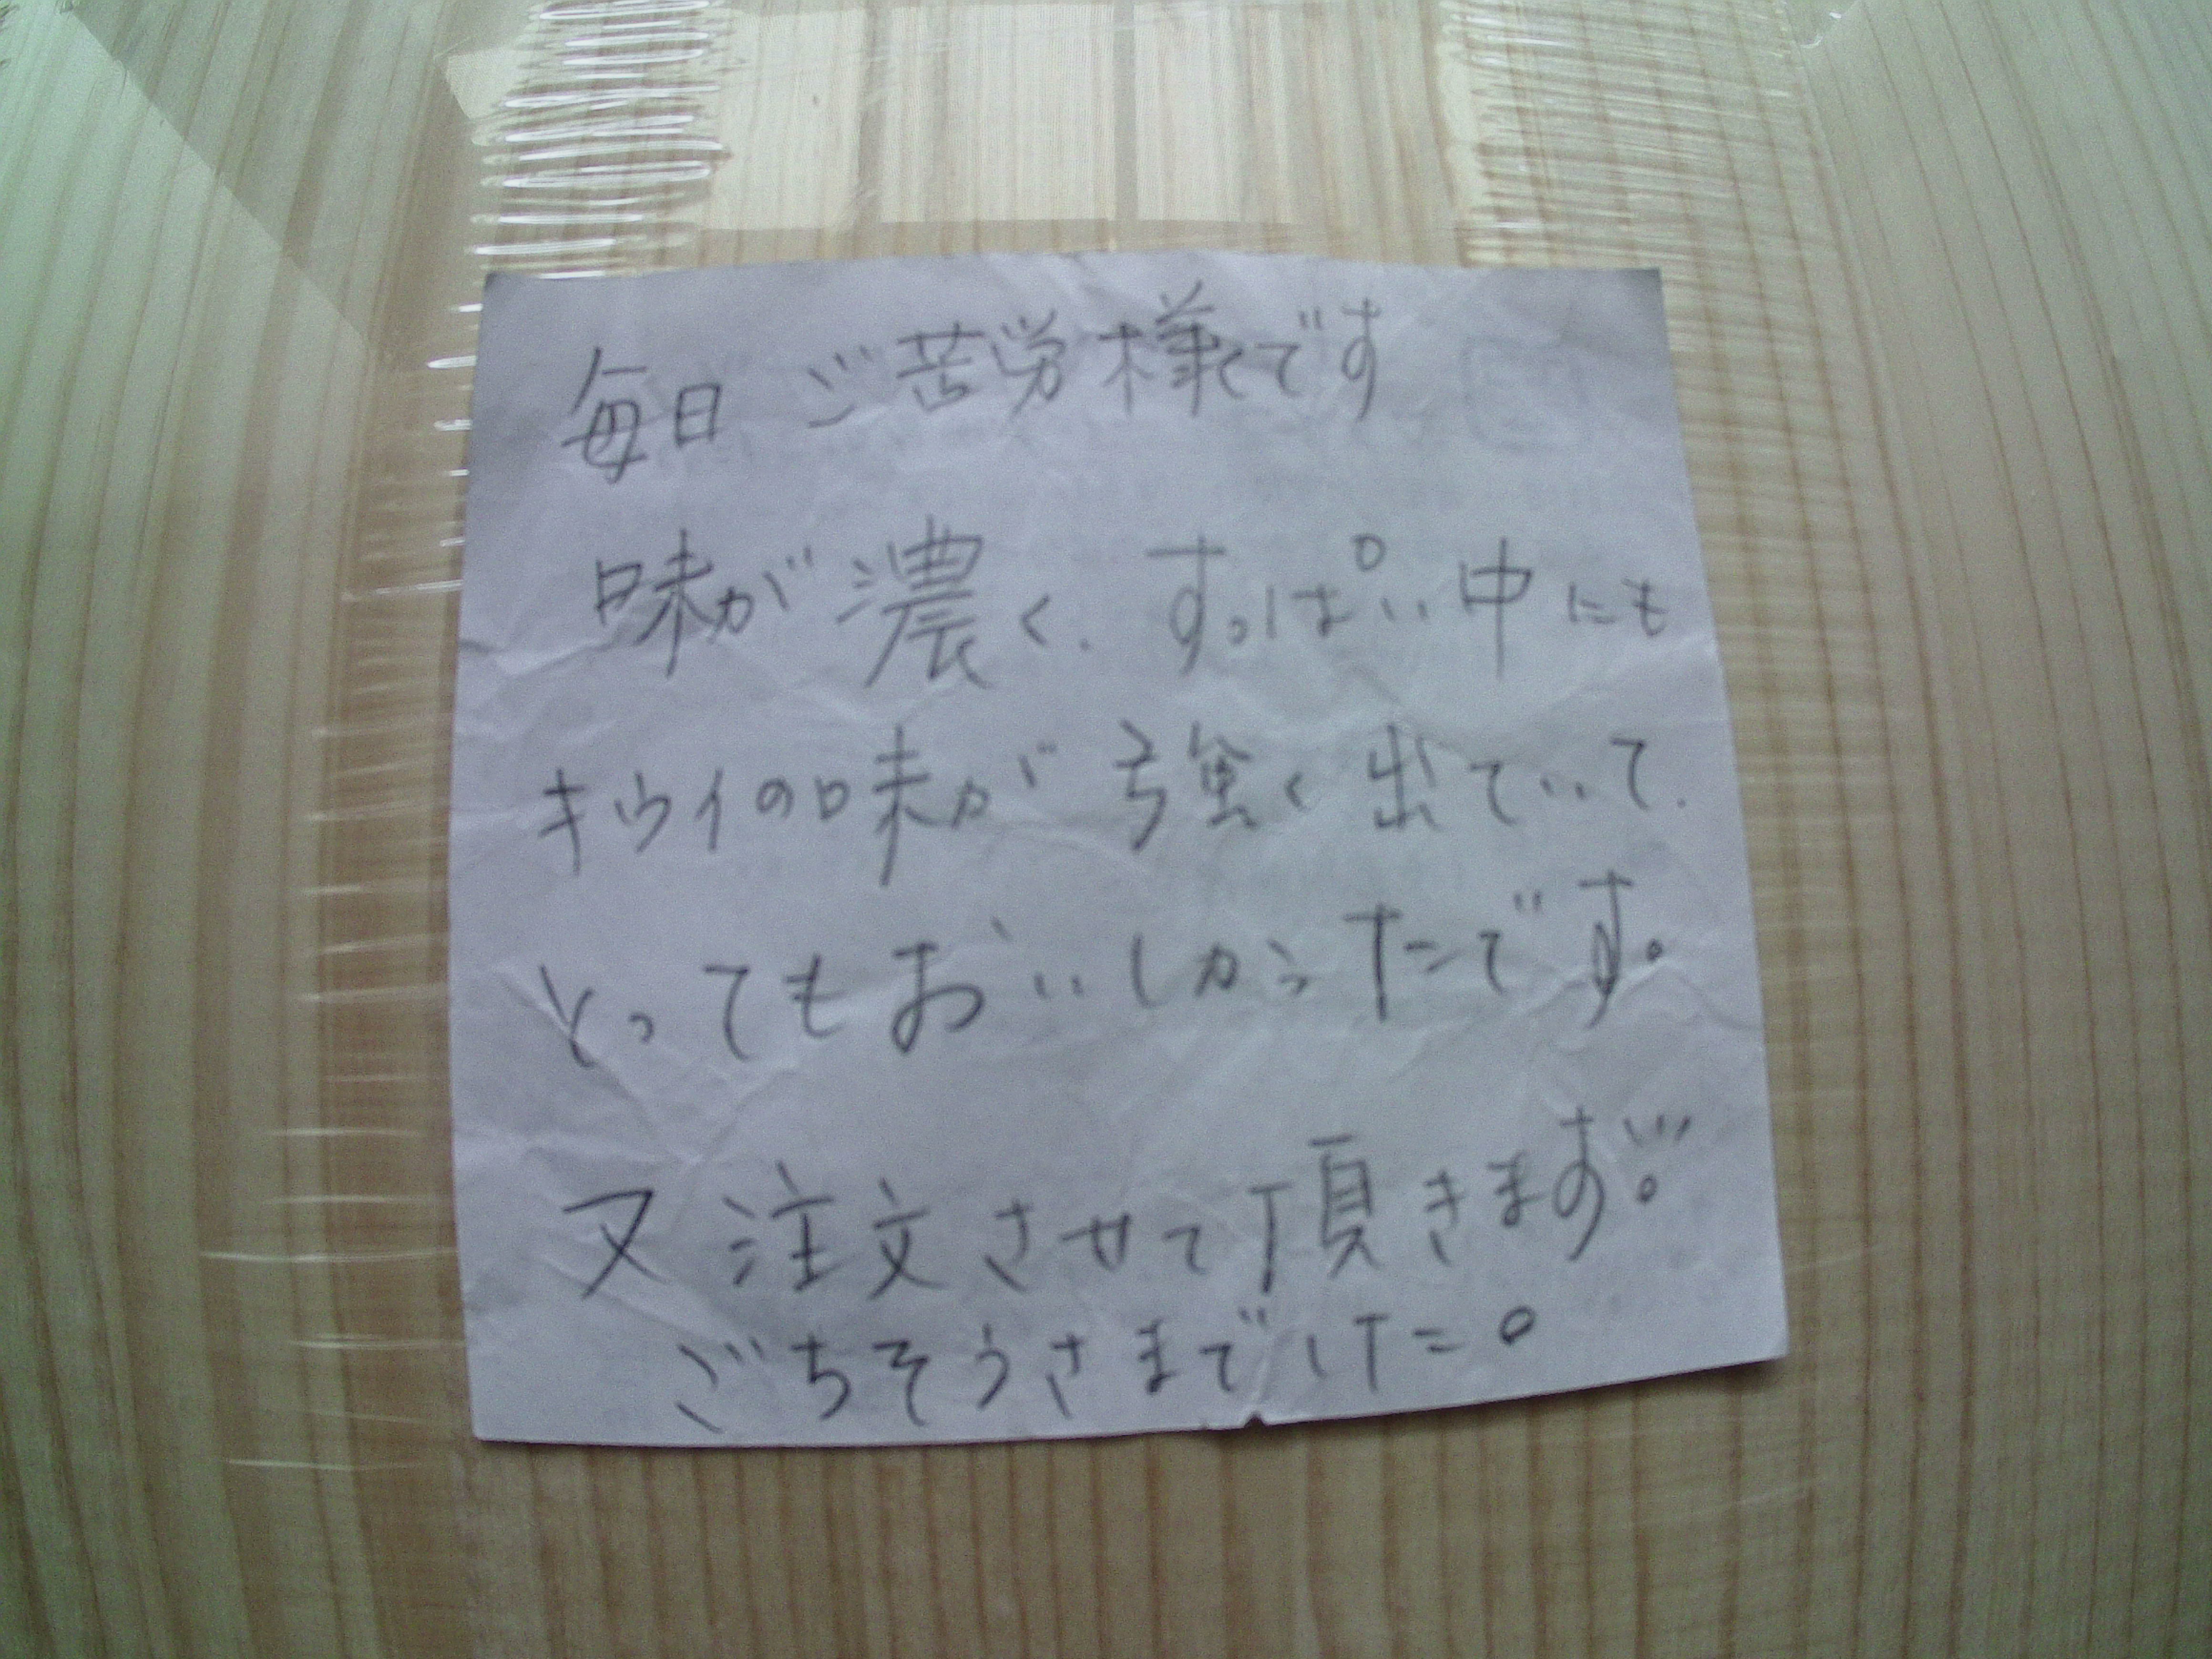 毎日 ご苦労様でです
味が濃く、すっぱい中にも
キウイの味が強く出ていて、
とってもおいしかったです。
又注文させて頂きます!!。
ごちそうさまでした。